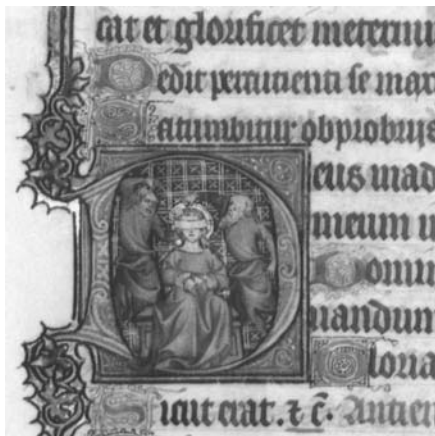 cat et glorificet in eternum
Dedit percutienti se max
Saturabitur obprobrijs
Deus in ad
meum in
Domin
uuandum
Gloria
Sicut erat. &amp; c̄. Antien